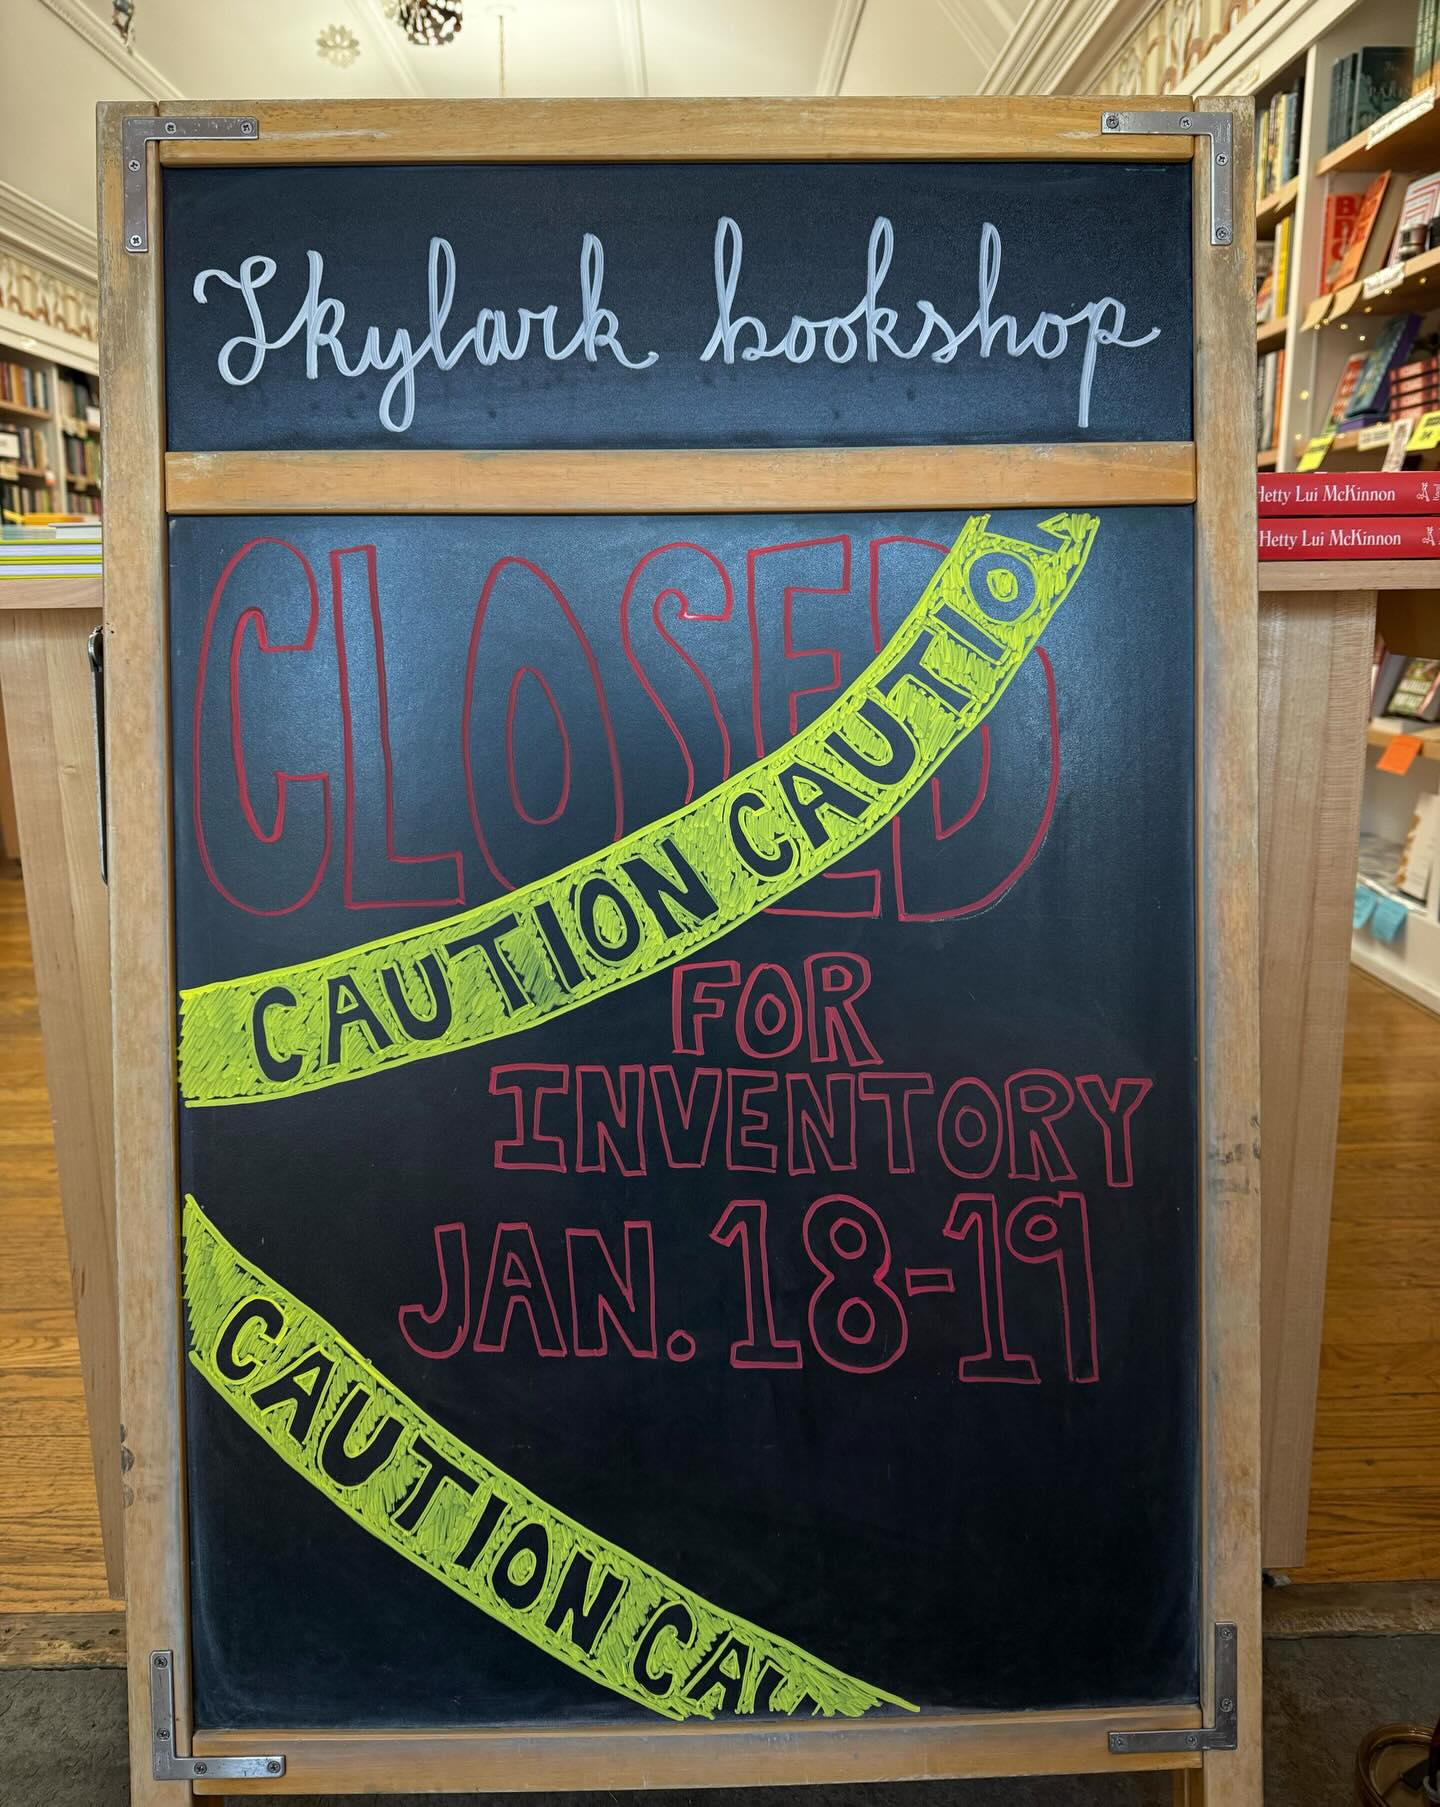 Skylark bookshop
CLOSED
CAUTION CAUTION
FOR
INVENTORY
JAN. 18-19
CAUTION CAU
Hetty Lui McKinnon
Hetty Lui McKinnon